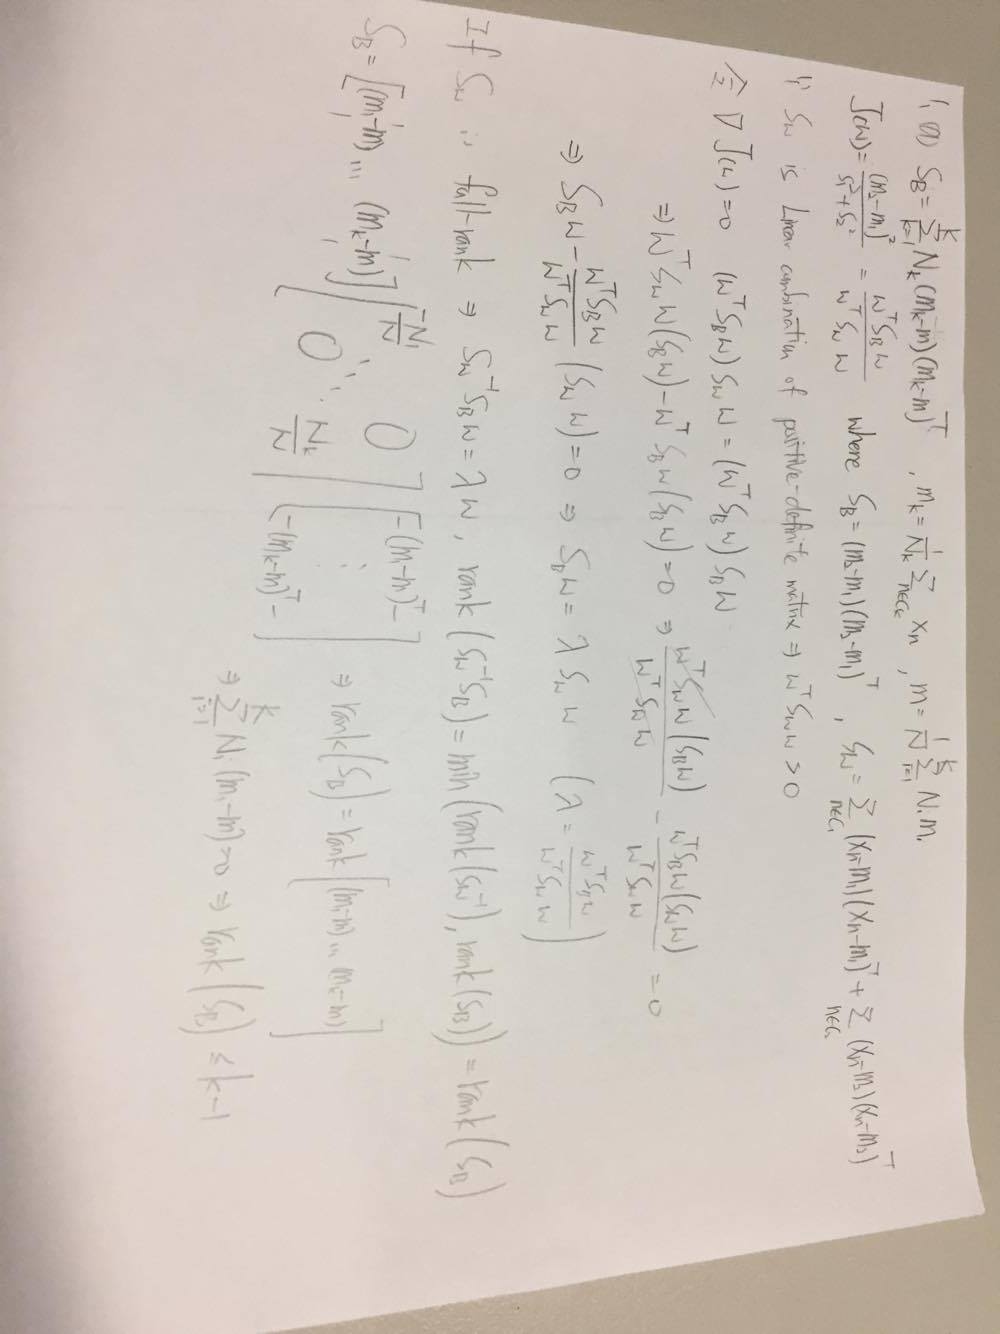 1, a) S_B = Σ_{k=1}^{K} N_k (m_k-m)(m_k-m)^T , m_k = 1/N_k Σ_{n∈C_k} x_n , m = 1/N Σ_{i=1}^{K} N_i m_i
J(w) = (m_2-m_1)^2 / (s_1^2+s_2^2) = w^T S_B w / w^T S_w w where S_B = (m_2-m_1)(m_2-m_1)^T , S_w = Σ_{n∈C_1} (x_n-m_1)(x_n-m_1)^T + Σ_{n∈C_2} (x_n-m_2)(x_n-m_2)^T
∵ S_w is Linear combination of positive-definite matrix ⇒ w^T S_w w > 0
令 ∇J(w)=0 (w^T S_B w) S_w w = (w^T S_B w) S_B w
⇒ w^T S_w w (S_B w) - w^T S_B w (S_B w) = 0 ⇒ w^T S_w w (S_B w) / w^T S_w w - w^T S_B w (S_w w) / w^T S_w w = 0
⇒ S_B w - w^T S_B w / w^T S_w w (S_w w) = 0 ⇒ S_B w = λ S_w w (λ = w^T S_B w / w^T S_w w)
If S_w is full-rank ⇒ S_w^{-1} S_B w = λ w , rank(S_w^{-1} S_B) = min(rank(S_w^{-1}), rank(S_B)) = rank(S_B)
S_B = [(m_1-m) ... (m_k-m)] [N_1/N 0 ⋱ 0 N_k/N] [-(m_1-m)^T- ⋮ -(m_k-m)^T-] ⇒ rank(S_B) = rank[(m_1-m) ... (m_k-m)]
⇒ Σ_{i=1}^{K} N_i (m_i-m) = 0 ⇒ rank(S_B) ≤ k-1